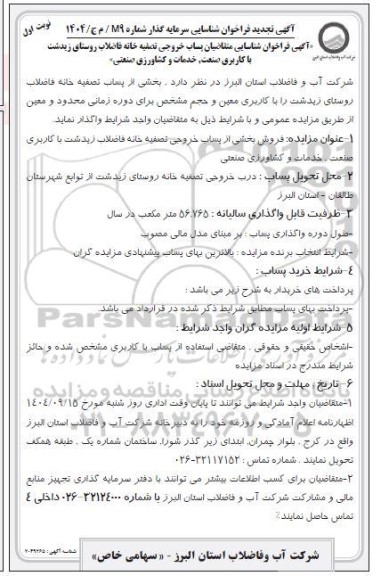 نوبت اول
آگهی تجدید فراخوان شناسایی سرمایه گذار شماره M9 / م ج/۱۴۰۴
«آگهی فراخوان شناسایی متقاضیان پساب خروجی تصفیه خانه فاضلاب روستای زیدشت
با کاربری صنعت، خدمات و کشاورزی صنعتی»
شرکت آب و فاضلاب استان البرز در نظر دارد ، بخشی از پساب تصفیه خانه فاضلاب
روستای زیدشت را با کاربری معین و حجم مشخص برای دوره زمانی محدود و معین
از طریق مزایده عمومی و با شرایط ذیل به متقاضیان واجد شرایط واگذار نماید.
۱-عنوان مزایده: فروش بخشی از پساب خروجی تصفیه خانه فاضلاب زیدشت با کاربری
صنعت ، خدمات و کشاورزی صنعتی
۲-محل تحویل پساب : درب خروجی تصفیه خانه روستای زیدشت از توابع شهرستان
طالقان - استان البرز
۳-ظرفیت قابل واگذاری سالیانه : ۵۶.۷۶۵ متر مکعب در سال
-طول دوره واگذاری پساب : بر مبنای مدل مالی مصوب
-شرایط انتخاب برنده مزایده : بالاترین بهای پساب پیشنهادی مزایده گران
۴-شرایط خرید پساب :
پرداخت های خریدار به شرح زیر می باشد :
-پرداخت بهای پساب مطابق شرایط ذکر شده در قرارداد می باشد
۵-شرایط اولیه مزایده گران واجد شرایط :
-اشخاص حقیقی و حقوقی ، متقاضی استفاده از پساب با کاربری مشخص شده و حائز
شرایط مندرج در اسناد مزایده
۶- تاریخ ، مهلت و محل تحویل اسناد :
۱-متقاضیان واجد شرایط می توانند تا پایان وقت اداری روز شنبه مورخ ۱۴۰۴/۰۹/۱۵
اظهارنامه اعلام آمادگی و رزومه خود را به دبیرخانه شرکت آب و فاضلاب استان البرز
واقع در کرج ، بلوار چمران, ابتدای زیر گذر شورا, ساختمان شماره یک , طبقه همکف
تحویل نمایند . شماره تماس : ۳۲۱۱۷۱۵۲-۰۲۶
۲-متقاضیان برای کسب اطلاعات بیشتر می توانند با دفتر سرمایه گذاری تجهیز منابع
مالی و مشارکت شرکت آب و فاضلاب استان البرز با شماره ۳۲۱۲۴۰۰۰-۰۲۶ داخلی ۴
تماس حاصل نمایند.
شرکت آب وفاضلاب استان البرز - «سهامی خاص»